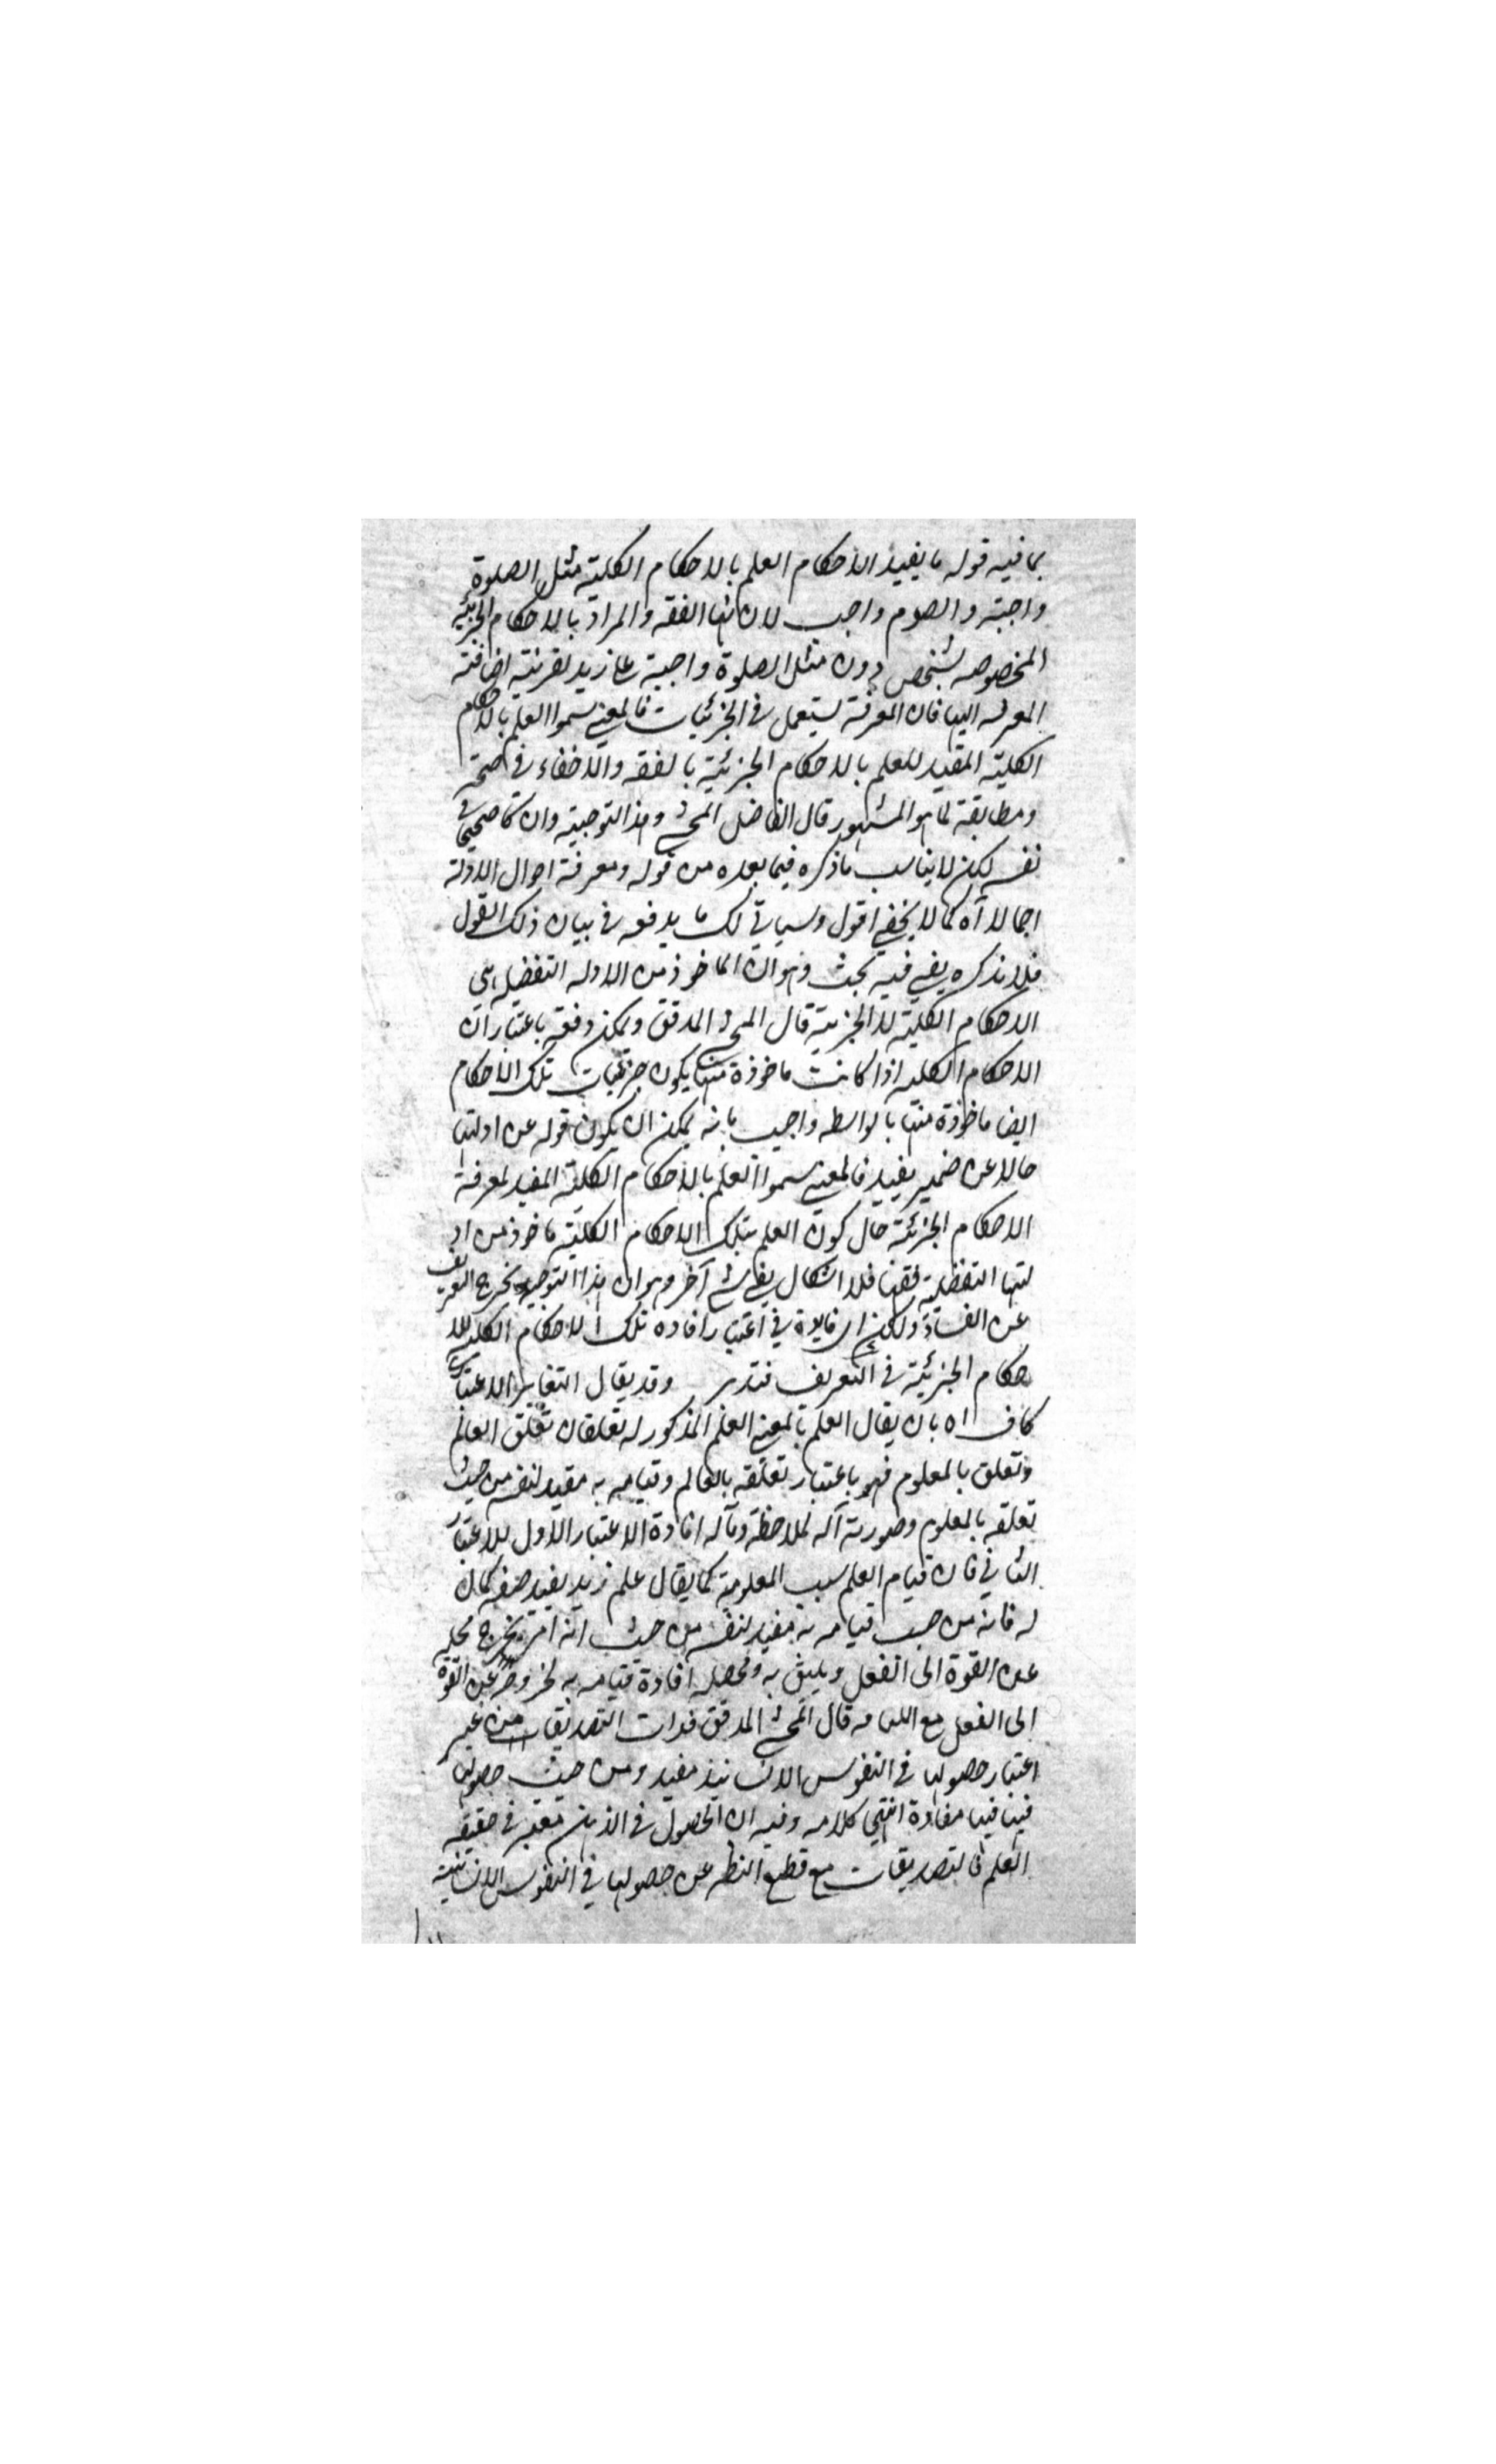 بما فيه قوله ما يفيد الاحكام العلم بالاحكام الكلية مثل الصلوة
واجبة والصوم واجب لان انها الفقه والمراد بالاحكام الجزئية
المخصوصه بشخص دون مثل الصلوة واجبة على زيد بقرينة اضافته
المعرفه اليها فان المعرفة يستعمل في الجزئيات فالمعنى سموا العلم بالاحكام
الكلية المفيد للعلم بالاحكام الجزئية بالفقه ولاخفاء في صحته
ومطابقة لما هو المشهور قال الفاضل المحشي وهذا التوجيه وان كا صحيحا في
نفسه لكن لا يناسب ما ذكره فيما بعده من قوله ومعرفة احوال الادلة
اجمالا آه كما لا يخفى اقول وسياتي لك ما يدفعه في بيان ذلك القول
فلا نذكره بقي فيه بحث وهو ان الماخوذ من الادله التفضيله هي
الاحكام الكلية لا الجزئية قال المحشي المدقق ويمكن دفعه باعتبار ان
الاحكام الكليه اذا كانت ماخوذة منها يكون جزئيات تلك الاحكام
ايضا ماخوذة منها بالواسطه واجيب بانه يمكن ان يكون قوله عن ادلتها
حالا عن ضمير يفيد فالمعنى سموا العلم بالاحكام الكلية المفيد لمعرفة
الاحكام الجزئية حال كون العلم بتلك الاحكام الكلية ماخوذ من اد
لتها التفضلية فقها فلا اشكال بقي شي آخر وهو ان هذا التوجيه يخرج التعريف
عن الفساد ولكن اي فايدة في اعتبار افاده تلك الاحكام الكليه للا
حكام الجزئية في التعريف فتدبر وقد يقال التغاير الاعتباري
كاف اه بان يقال العلم بالمعنى العلم المذكور له تعلقان تعلق العالم
وتعلق بالمعلوم فهو باعتبار تعلقه بالعالم وقيامه به مفيد لنفسه من حيث
تعلقه بالمعلوم وصورته آله لملاحظة ومآله افادة الاعتبار الاول للاعتبار
الثاني فان قيام العلم سبب المعلومية كما يقال علم زيد يفيد صفه كمال
له فانه من حيث قيامه به مفيد لنفسه من حيث انه امر يخرج محله
عن القوة الى الفعل ويليق به ومحصله افادة قيامه به لخروجه عن القوة
الى الفعل مع قال المحشي المدقق فذات التصديقات من غير
اعتبار حصولها في النفوس الانسانية مفيد ومن حيث حصولها
فينا فيها مفادة انتهى كلامه وفيه ان الحصول في الذهن معتبر في حقيقه
العلم فالتصديقات مع قطع النظر عن حصولها في النفوس الانسانية